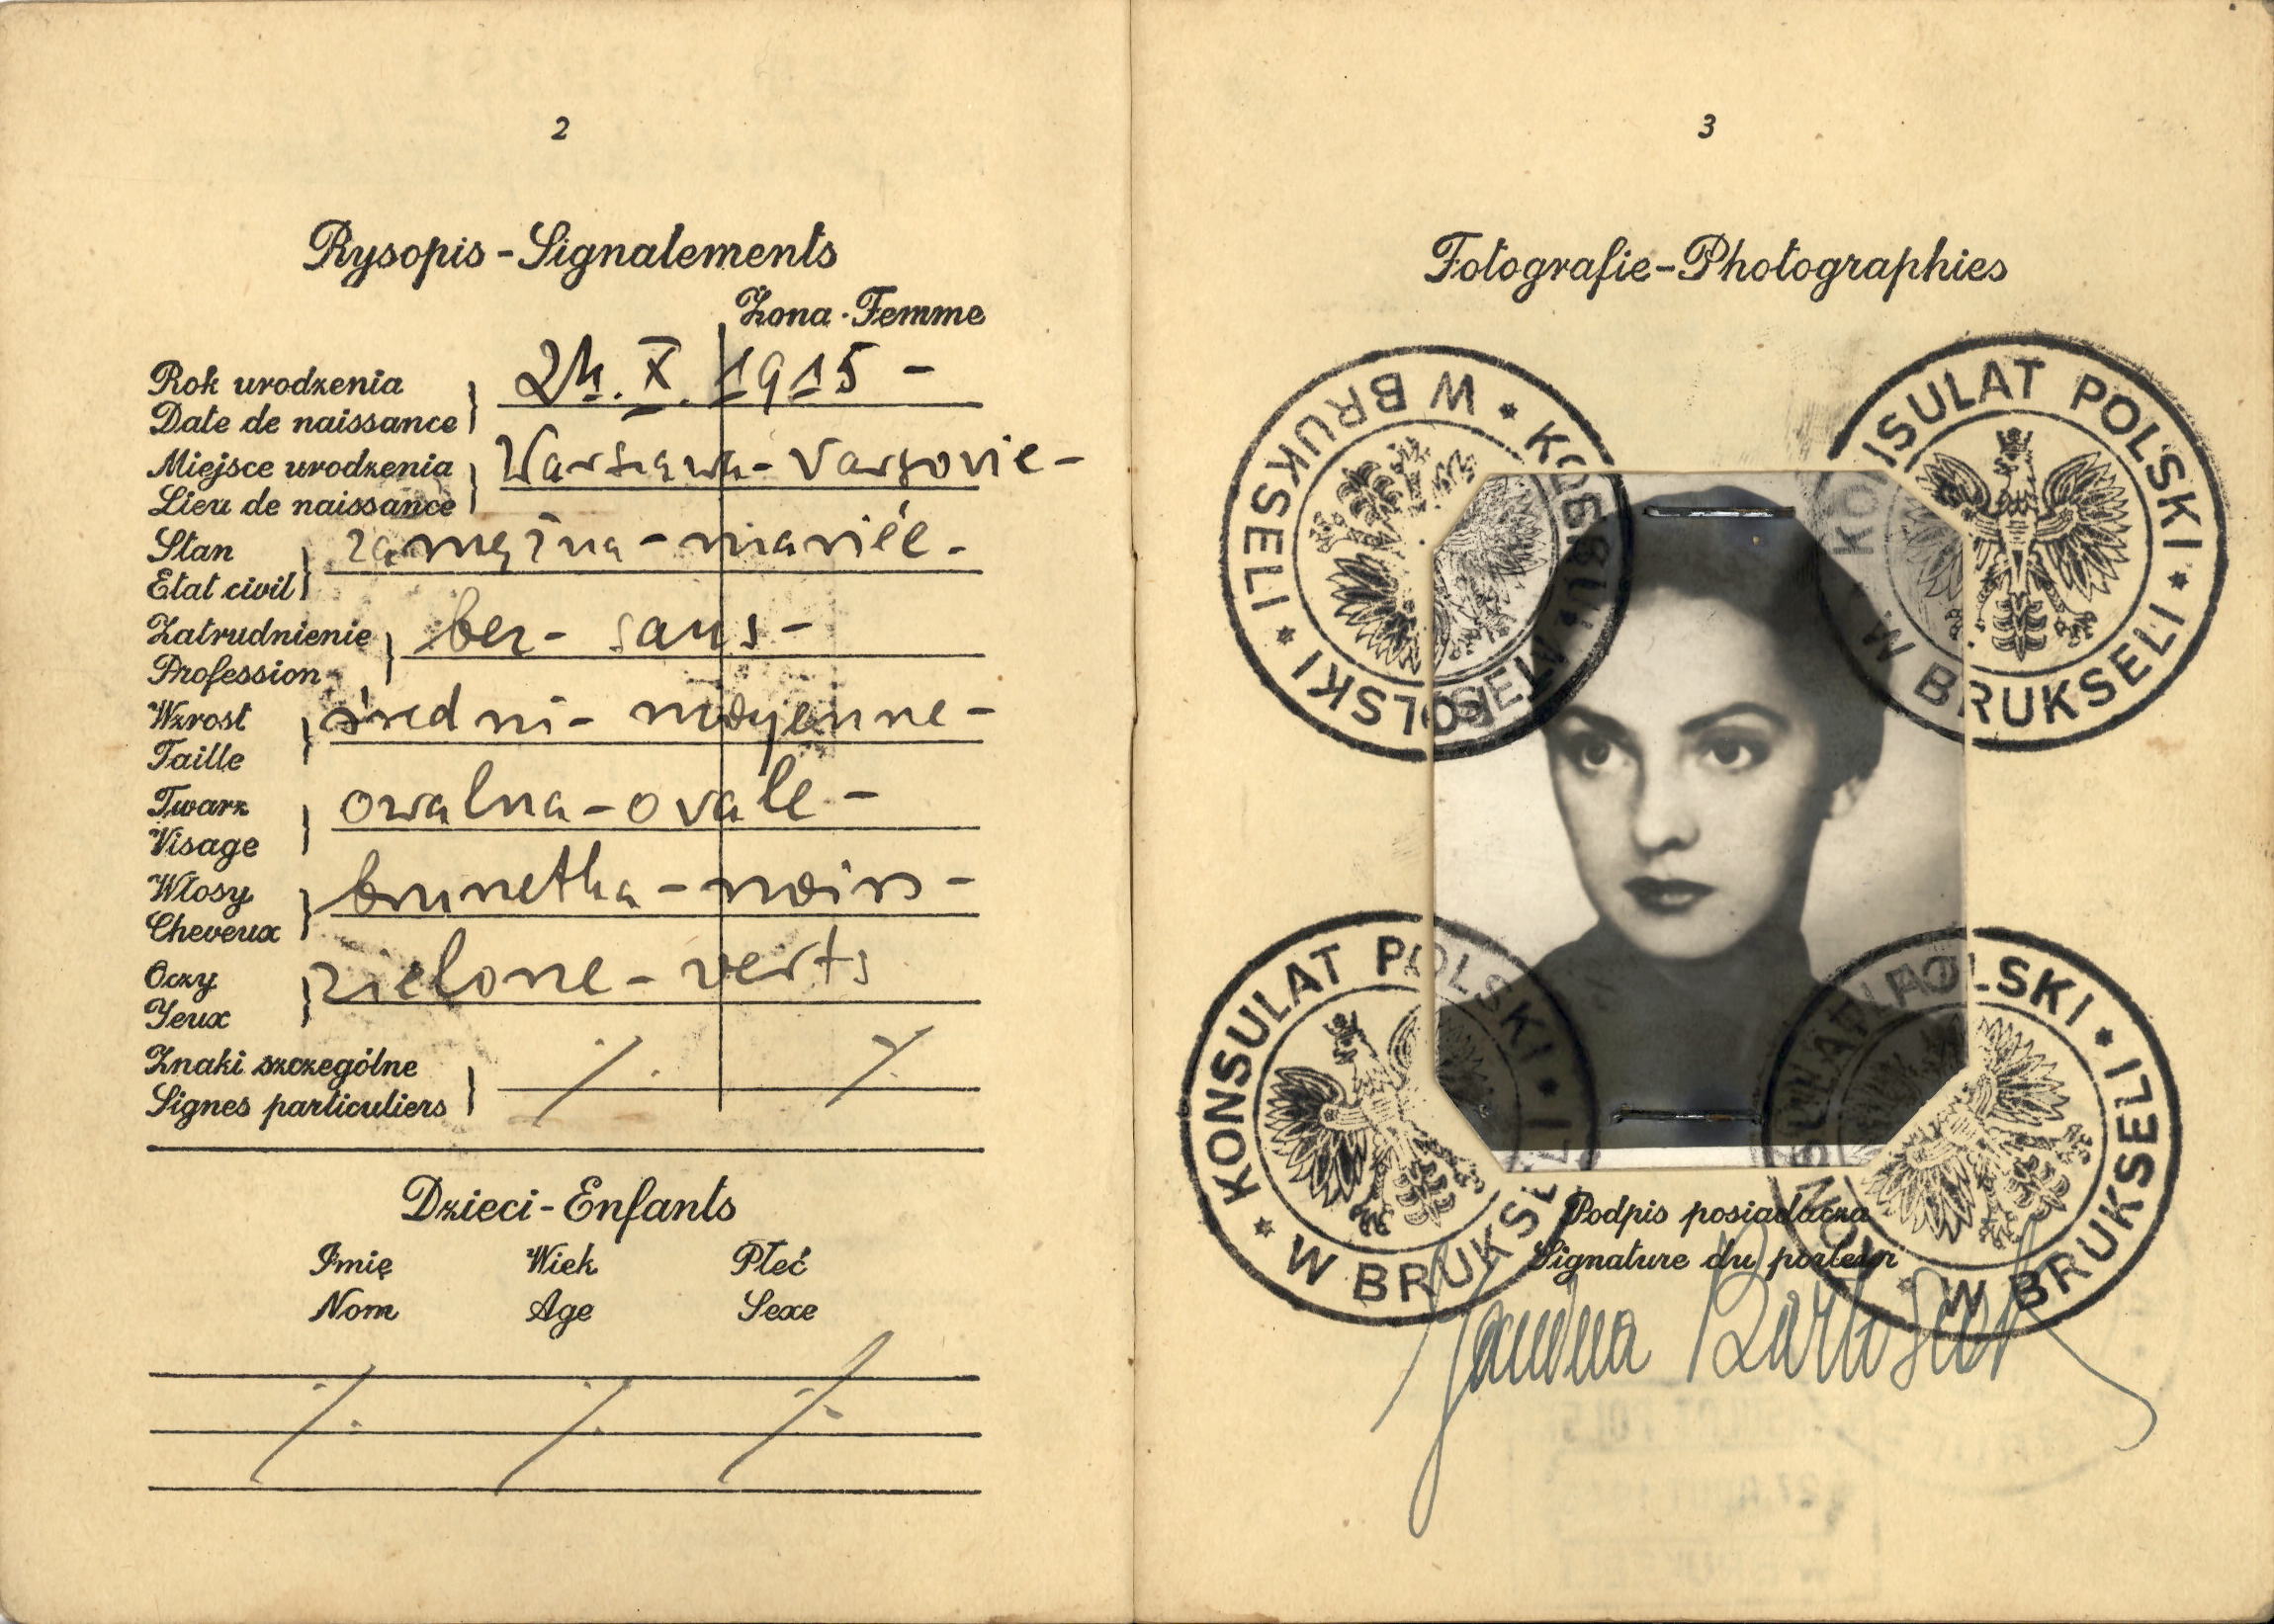 2
Rysopis - Signalements
Żona - Femme
Rok urodzenia
Date de naissance
24. X. 1915 -
Miejsce urodzenia
Lieu de naissance
Warszawa - Varsovie -
Stan
Etat civil
zamężna - mariée -
Zatrudnienie
Profession
bez - sans -
Wzrost
Taille
średni - moyenne -
Twarz
Visage
owalna - ovale -
Włosy
Cheveux
brunetka - noirs -
Oczy
Yeux
zielone - verts
Znaki szczególne
Signes particuliers
Dzieci - Enfants
Imię Wiek Płeć
Nom Age Sexe
3
Fotografie - Photographies
KONSULAT POLSKI * W BRUKSELI *
KONSULAT POLSKI * W BRUKSELI *
KONSULAT POLSKI * W BRUKSELI *
KONSULAT POLSKI * W BRUKSELI *
Podpis posiadacza
Signature du porteur
Janina